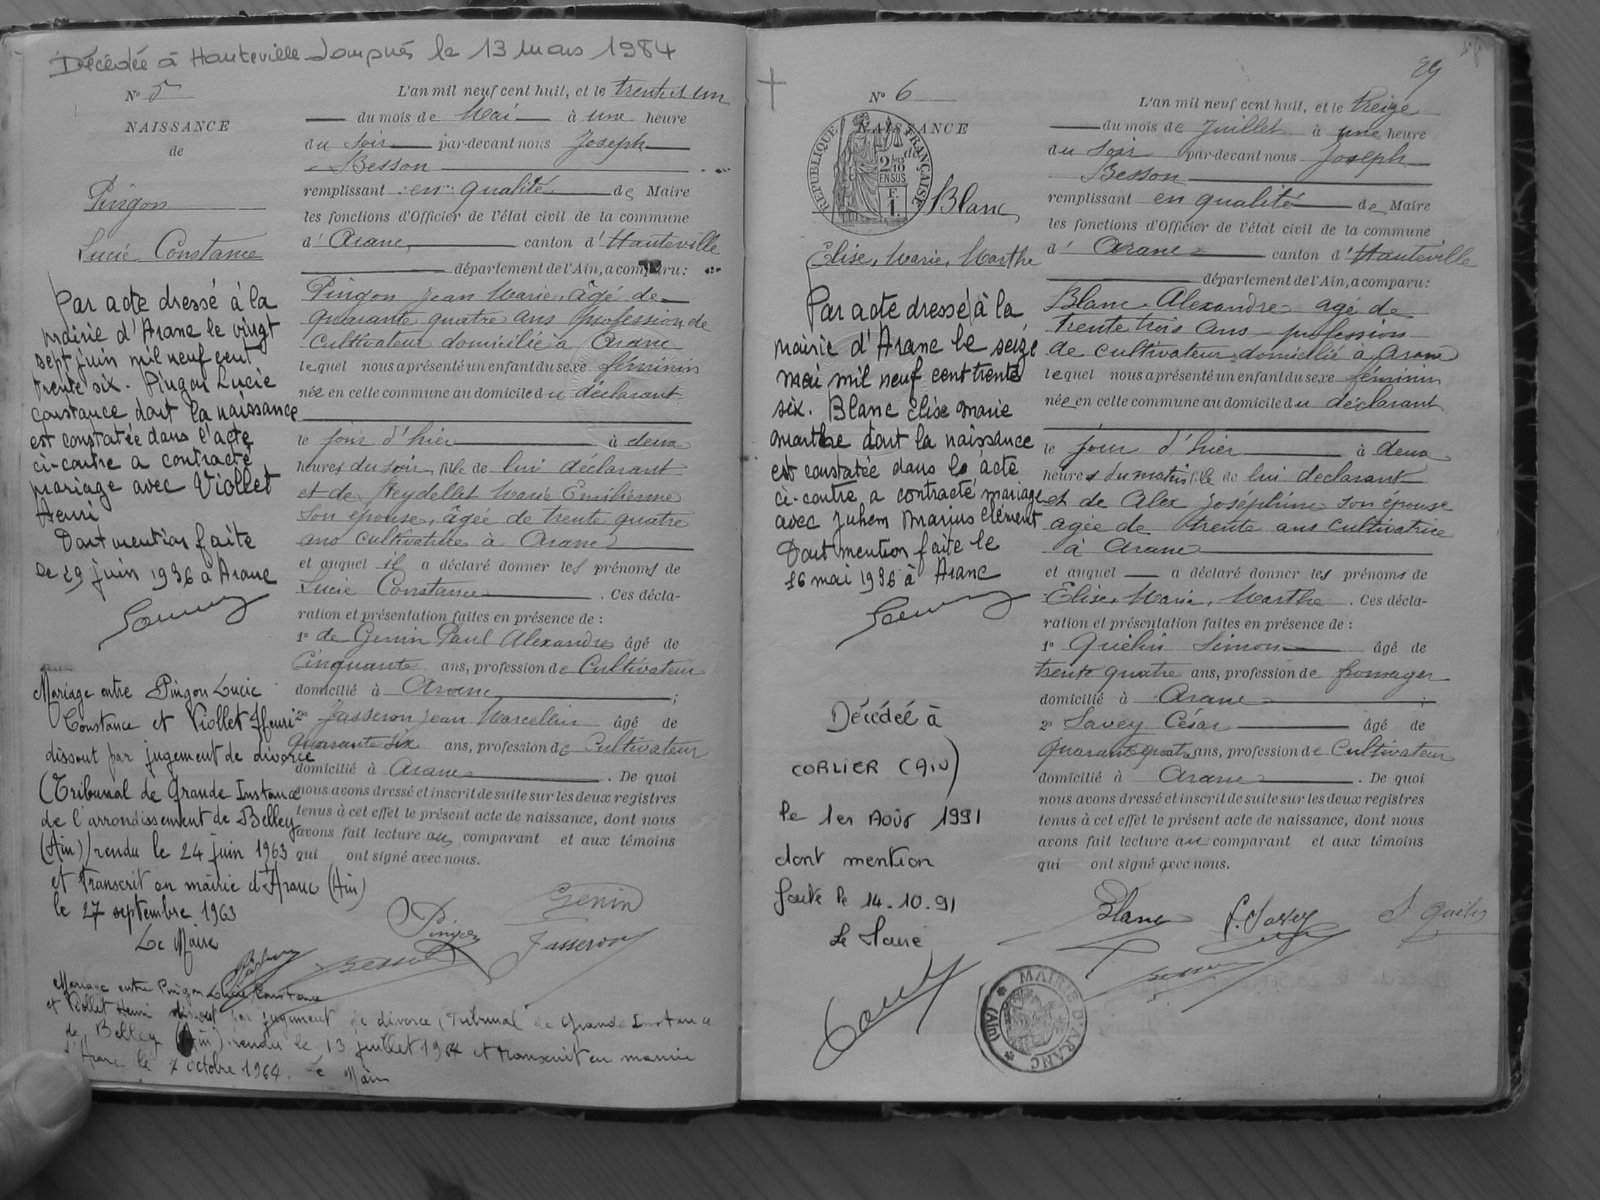 Décédée à Hauteville Lompnès le 13 mars 1984
N° 5
NAISSANCE
de
Pingon
Lucie Constance
Par acte dressé à la
mairie d'Aranc le vingt
sept juin mil neuf cent
trente six. Pingon Lucie
Constance dont la naissance
est constatée dans l'acte
ci-contre a contracté
mariage avec Viollet
Henri
Dont mention faite
le 29 juin 1936 à Aranc
Mariage entre Pingon Lucie
Constance et Viollet Henri
dissout par jugement de divorce
(Tribunal de Grande Instance
de l'arrondissement de Belley
(Ain)) rendu le 24 juin 1963
et transcrit en mairie d'Aranc (Ain)
le 27 septembre 1963
Le Maire
Mariage entre Pingon Lucie Constance
et Viollet Henri dissout par jugement de divorce (Tribunal de Grande Instance
de Belley (Ain)) rendu le 13 juillet 1964 et transcrit en mairie
d'Aranc le 7 octobre 1964. Le Maire
L'an mil neuf cent huit, et le trente et un
du mois de Mai à une heure
du soir par-devant nous Joseph
Besson
remplissant en qualité de Maire
les fonctions d'Officier de l'état civil de la commune
d' Aranc canton d' Hauteville
département de l'Ain, a comparu:
Pingon Jean Marie, âgé de
quarante quatre ans profession de
cultivateur domicilié à Aranc
lequel nous a présenté un enfant du sexe féminin
née en cette commune au domicile du déclarant
le jour d'hier à deux
heures du soir, fille de lui déclarant
et de Neydellet Marie Emilienne
son épouse, âgée de trente quatre
ans cultivatrice à Aranc
et auquel il a déclaré donner les prénoms de
Lucie Constance . Ces décla-
ration et présentation faites en présence de :
1° de Genin Paul Alexandre âgé de
Cinquante ans, profession de Cultivateur
domicilié à Aranc ;
2° Jasseron Jean Marcellin âgé de
quarante six ans, profession de Cultivateur
domicilié à Aranc . De quoi
nous avons dressé et inscrit de suite sur les deux registres
tenus à cet effet le présent acte de naissance, dont nous
avons fait lecture au comparant et aux témoins
qui ont signé avec nous.
Genin
Pingon
Jasseron
Besson
29
N° 6
NAISSANCE
de
RÉPUBLIQUE FRANÇAISE
Blanc
Elise, Marie, Marthe
Par acte dressé à la
mairie d'Aranc le seize
mai mil neuf cent trente
six. Blanc Elise Marie
Marthe dont la naissance
est constatée dans l'acte
ci-contre a contracté mariage
avec Juhem Marius Clément
Dont mention faite le
26 mai 1936 à Aranc
Décédée à
CORLIER (AIN)
le 1er Août 1991
dont mention
faite le 14.10.91
Le Maire
MAIRIE D'ARANC
(Ain)
L'an mil neuf cent huit, et le treize
du mois de Juillet à une heure
du soir par-devant nous Joseph
Besson
remplissant en qualité de Maire
les fonctions d'Officier de l'état civil de la commune
d' Aranc canton d' Hauteville
département de l'Ain, a comparu:
Blanc Alexandre agé de
trente trois ans profession
de cultivateur, domicilié à Aranc
lequel nous a présenté un enfant du sexe féminin
née en cette commune au domicile du déclarant
le jour d'hier à deux
heures du matin, fille de lui déclarant
et de Alex Joséphine son épouse
agée de trente ans cultivatrice
à Aranc
et auquel a déclaré donner les prénoms de
Elise, Marie, Marthe . Ces décla-
ration et présentation faites en présence de :
1° Quélin Simon âgé de
trente quatre ans, profession de fromager
domicilié à Aranc ;
2° Savey César âgé de
quarante quatre ans, profession de Cultivateur
domicilié à Aranc . De quoi
nous avons dressé et inscrit de suite sur les deux registres
tenus à cet effet le présent acte de naissance, dont nous
avons fait lecture au comparant et aux témoins
qui ont signé avec nous.
Blanc C. Savey S Quélin
Besson